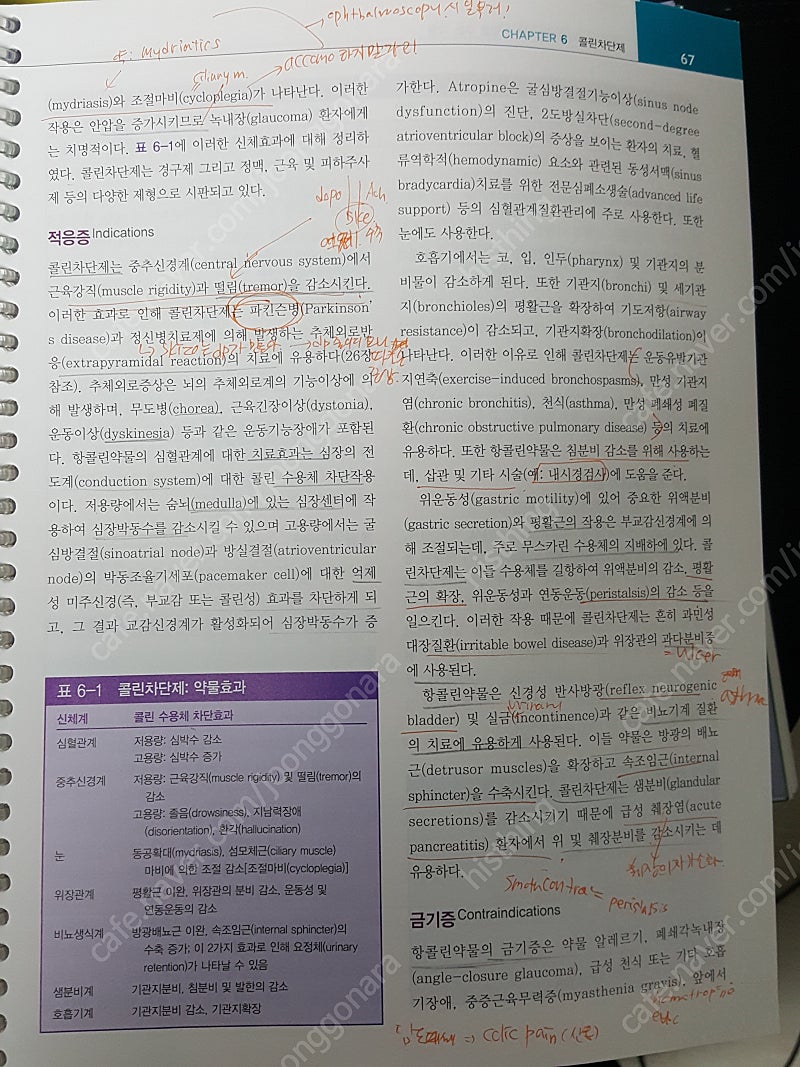 ophthalmoscopy시
CHAPTER 6 콜린차단제
67
mydriatics
ciliary m.
(mydriasis)와 조절마비(cycloplegia)가 나타난다. 이러한
작용은 안압을 증가시키므로 녹내장(glaucoma) 환자에게
는 치명적이다. 표 6-1에 이러한 신체효과에 대해 정리하
였다. 콜린차단제는 경구제 그리고 정맥, 근육 및 피하주사
제 등의 다양한 제형으로 시판되고 있다.
dopa
Ach
적응증 Indications
콜린차단제는 중추신경계(central nervous system)에서
근육강직(muscle rigidity)과 떨림(tremor)을 감소시킨다.
이러한 효과로 인해 콜린차단제는 파킨슨병(Parkinson'
s disease)과 정신병치료제에 의해 발생하는 추체외로반
응(extrapyramidal reaction)의 치료에 유용하다(26장
참조). 추체외로증상은 뇌의 추체외로계의 기능이상에 의
해 발생하며, 무도병(chorea), 근육긴장이상(dystonia),
운동이상(dyskinesia) 등과 같은 운동기능장애가 포함된
다. 항콜린약물의 심혈관계에 대한 치료효과는 심장의 전
도계(conduction system)에 대한 콜린 수용체 차단작용
이다. 저용량에서는 숨뇌(medulla)에 있는 심장센터에 작
용하여 심장박동수를 감소시킬 수 있으며 고용량에서는 굴
심방결절(sinoatrial node)과 방실결절(atrioventricular
node)의 박동조율기세포(pacemaker cell)에 대한 억제
성 미주신경(즉, 부교감 또는 콜린성) 효과를 차단하게 되
고, 그 결과 교감신경계가 활성화되어 심장박동수가 증
표 6-1 콜린차단제: 약물효과
신체계 콜린 수용체 차단효과
심혈관계 저용량: 심박수 감소
고용량: 심박수 증가
중추신경계 저용량: 근육강직(muscle rigidity) 및 떨림(tremor)의
감소
고용량: 졸음(drowsiness), 지남력장애
(disorientation), 환각(hallucination)
눈 동공확대(mydriasis), 섬모체근(ciliary muscle)
마비에 의한 조절 감소[조절마비(cycloplegia)]
위장관계 평활근 이완, 위장관의 분비 감소, 운동성 및
연동운동의 감소
비뇨생식계 방광배뇨근 이완, 속조임근(internal sphincter)의
수축 증가; 이 2가지 효과로 인해 요정체(urinary
retention)가 나타날 수 있음
샘분비계 기관지분비, 침분비 및 발한의 감소
호흡기계 기관지분비 감소, 기관지확장
가한다. Atropine은 굴심방결절기능이상(sinus node
dysfunction)의 진단, 2도방실차단(second-degree
atrioventricular block)의 증상을 보이는 환자의 치료, 혈
류역학적(hemodynamic) 요소와 관련된 동성서맥(sinus
bradycardia)치료를 위한 전문심폐소생술(advanced life
support) 등의 심혈관계질환관리에 주로 사용한다. 또한
눈에도 사용한다.
호흡기에서는 코, 입, 인두(pharynx) 및 기관지의 분
비물이 감소하게 된다. 또한 기관지(bronchi) 및 세기관
지(bronchioles)의 평활근을 확장하여 기도저항(airway
resistance)이 감소되고, 기관지확장(bronchodilation)이
나타난다. 이러한 이유로 인해 콜린차단제는 운동유발기관
지연축(exercise-induced bronchospasms), 만성 기관지
염(chronic bronchitis), 천식(asthma), 만성 폐쇄성 폐질
환(chronic obstructive pulmonary disease) 등의 치료에
유용하다. 또한 항콜린약물은 침분비 감소를 위해 사용하는
데, 삽관 및 기타 시술(예: 내시경검사)에 도움을 준다.
위운동성(gastric motility)에 있어 중요한 위액분비
(gastric secretion)와 평활근의 작용은 부교감신경계에 의
해 조절되는데, 주로 무스카린 수용체의 지배하에 있다. 콜
린차단제는 이들 수용체를 길항하여 위액분비의 감소, 평활
근의 확장, 위운동성과 연동운동(peristalsis)의 감소 등을
일으킨다. 이러한 작용 때문에 콜린차단제는 흔히 과민성
대장질환(irritable bowel disease)과 위장관의 과다분비증
에 사용된다.
= ulcer
asthma
항콜린약물은 신경성 반사방광(reflex neurogenic
bladder) 및 실금(incontinence)과 같은 비뇨기계 질환
의 치료에 유용하게 사용된다. 이들 약물은 방광의 배뇨
근(detrusor muscles)을 확장하고 속조임근(internal
sphincter)을 수축시킨다. 콜린차단제는 샘분비(glandular
secretions)를 감소시키기 때문에 급성 췌장염(acute
pancreatitis) 환자에서 위 및 췌장분비를 감소시키는 데
유용하다.
peristalsis
금기증 Contraindications
항콜린약물의 금기증은 약물 알레르기, 폐쇄각녹내장
(angle-closure glaucoma), 급성 천식 또는 기타 호흡
기장애, 중증근육무력증(myasthenia gravis), 앞에서
=> colic pain (산통)